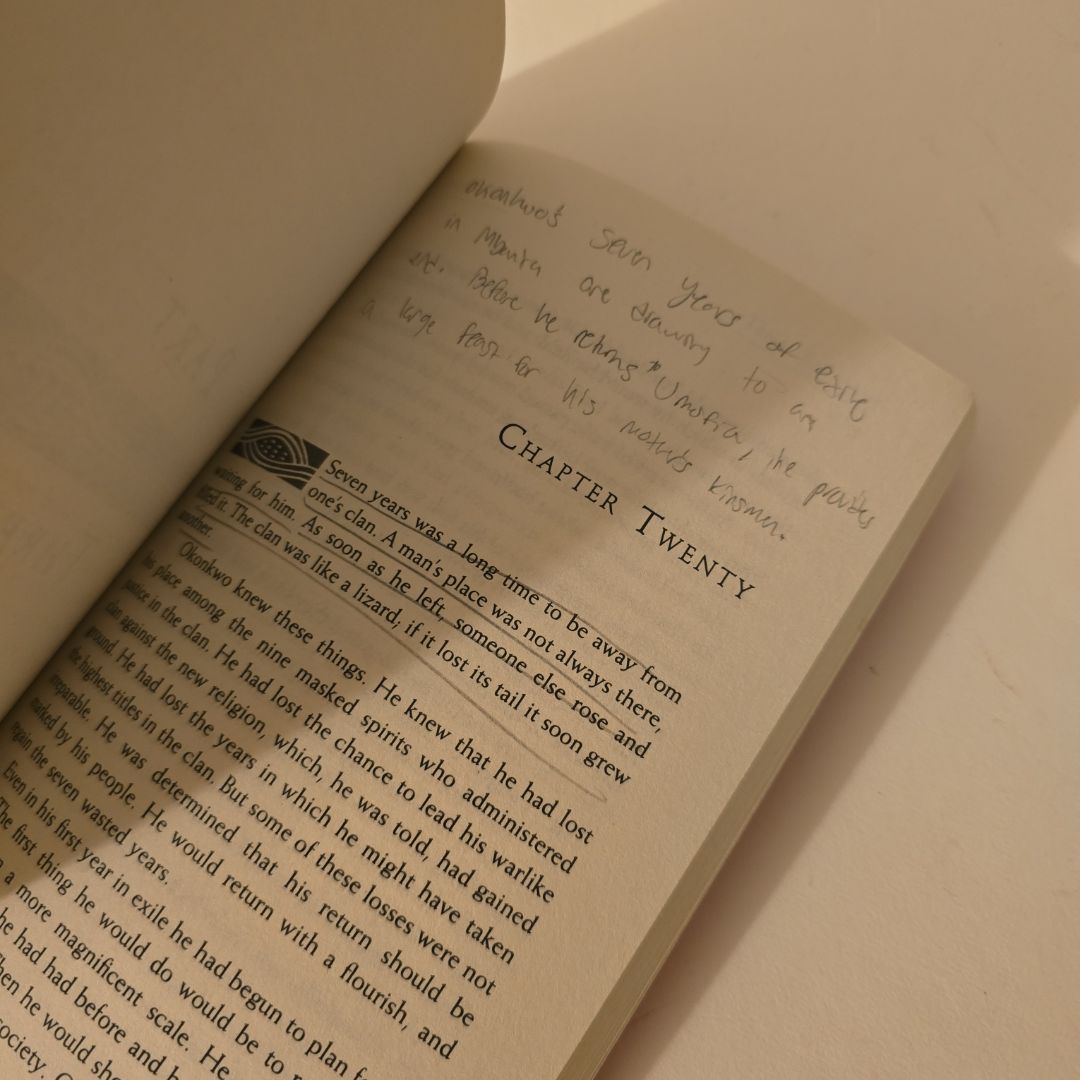 okonkwo's seven years of exile
in Mbanta are drawing to an
end. Before he returns to Umofia, he provides
a large feast for his mother's kinsmen.
CHAPTER TWENTY
Seven years was a long time to be away from
one's clan. A man's place was not always there,
waiting for him. As soon as he left, someone else rose and
filled it. The clan was like a lizard; if it lost its tail it soon grew
another.
Okonkwo knew these things. He knew that he had lost
his place among the nine masked spirits who administered
justice in the clan. He had lost the chance to lead his warlike
clan against the new religion, which, he was told, had gained
ground. He had lost the years in which he might have taken
the highest titles in the clan. But some of these losses were not
irreparable. He was determined that his return should be
marked by his people. He would return with a flourish, and
regain the seven wasted years.
Even in his first year in exile he had begun to plan
The first thing he would do would be to
a more magnificent scale. He
he had had before and
Then he would
society.